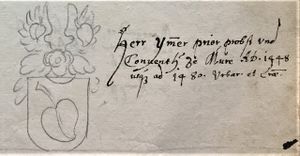 Herr Ymer prior probst und
Convent zu Mure AD. 1448
usq ad 1480. Urbar. et